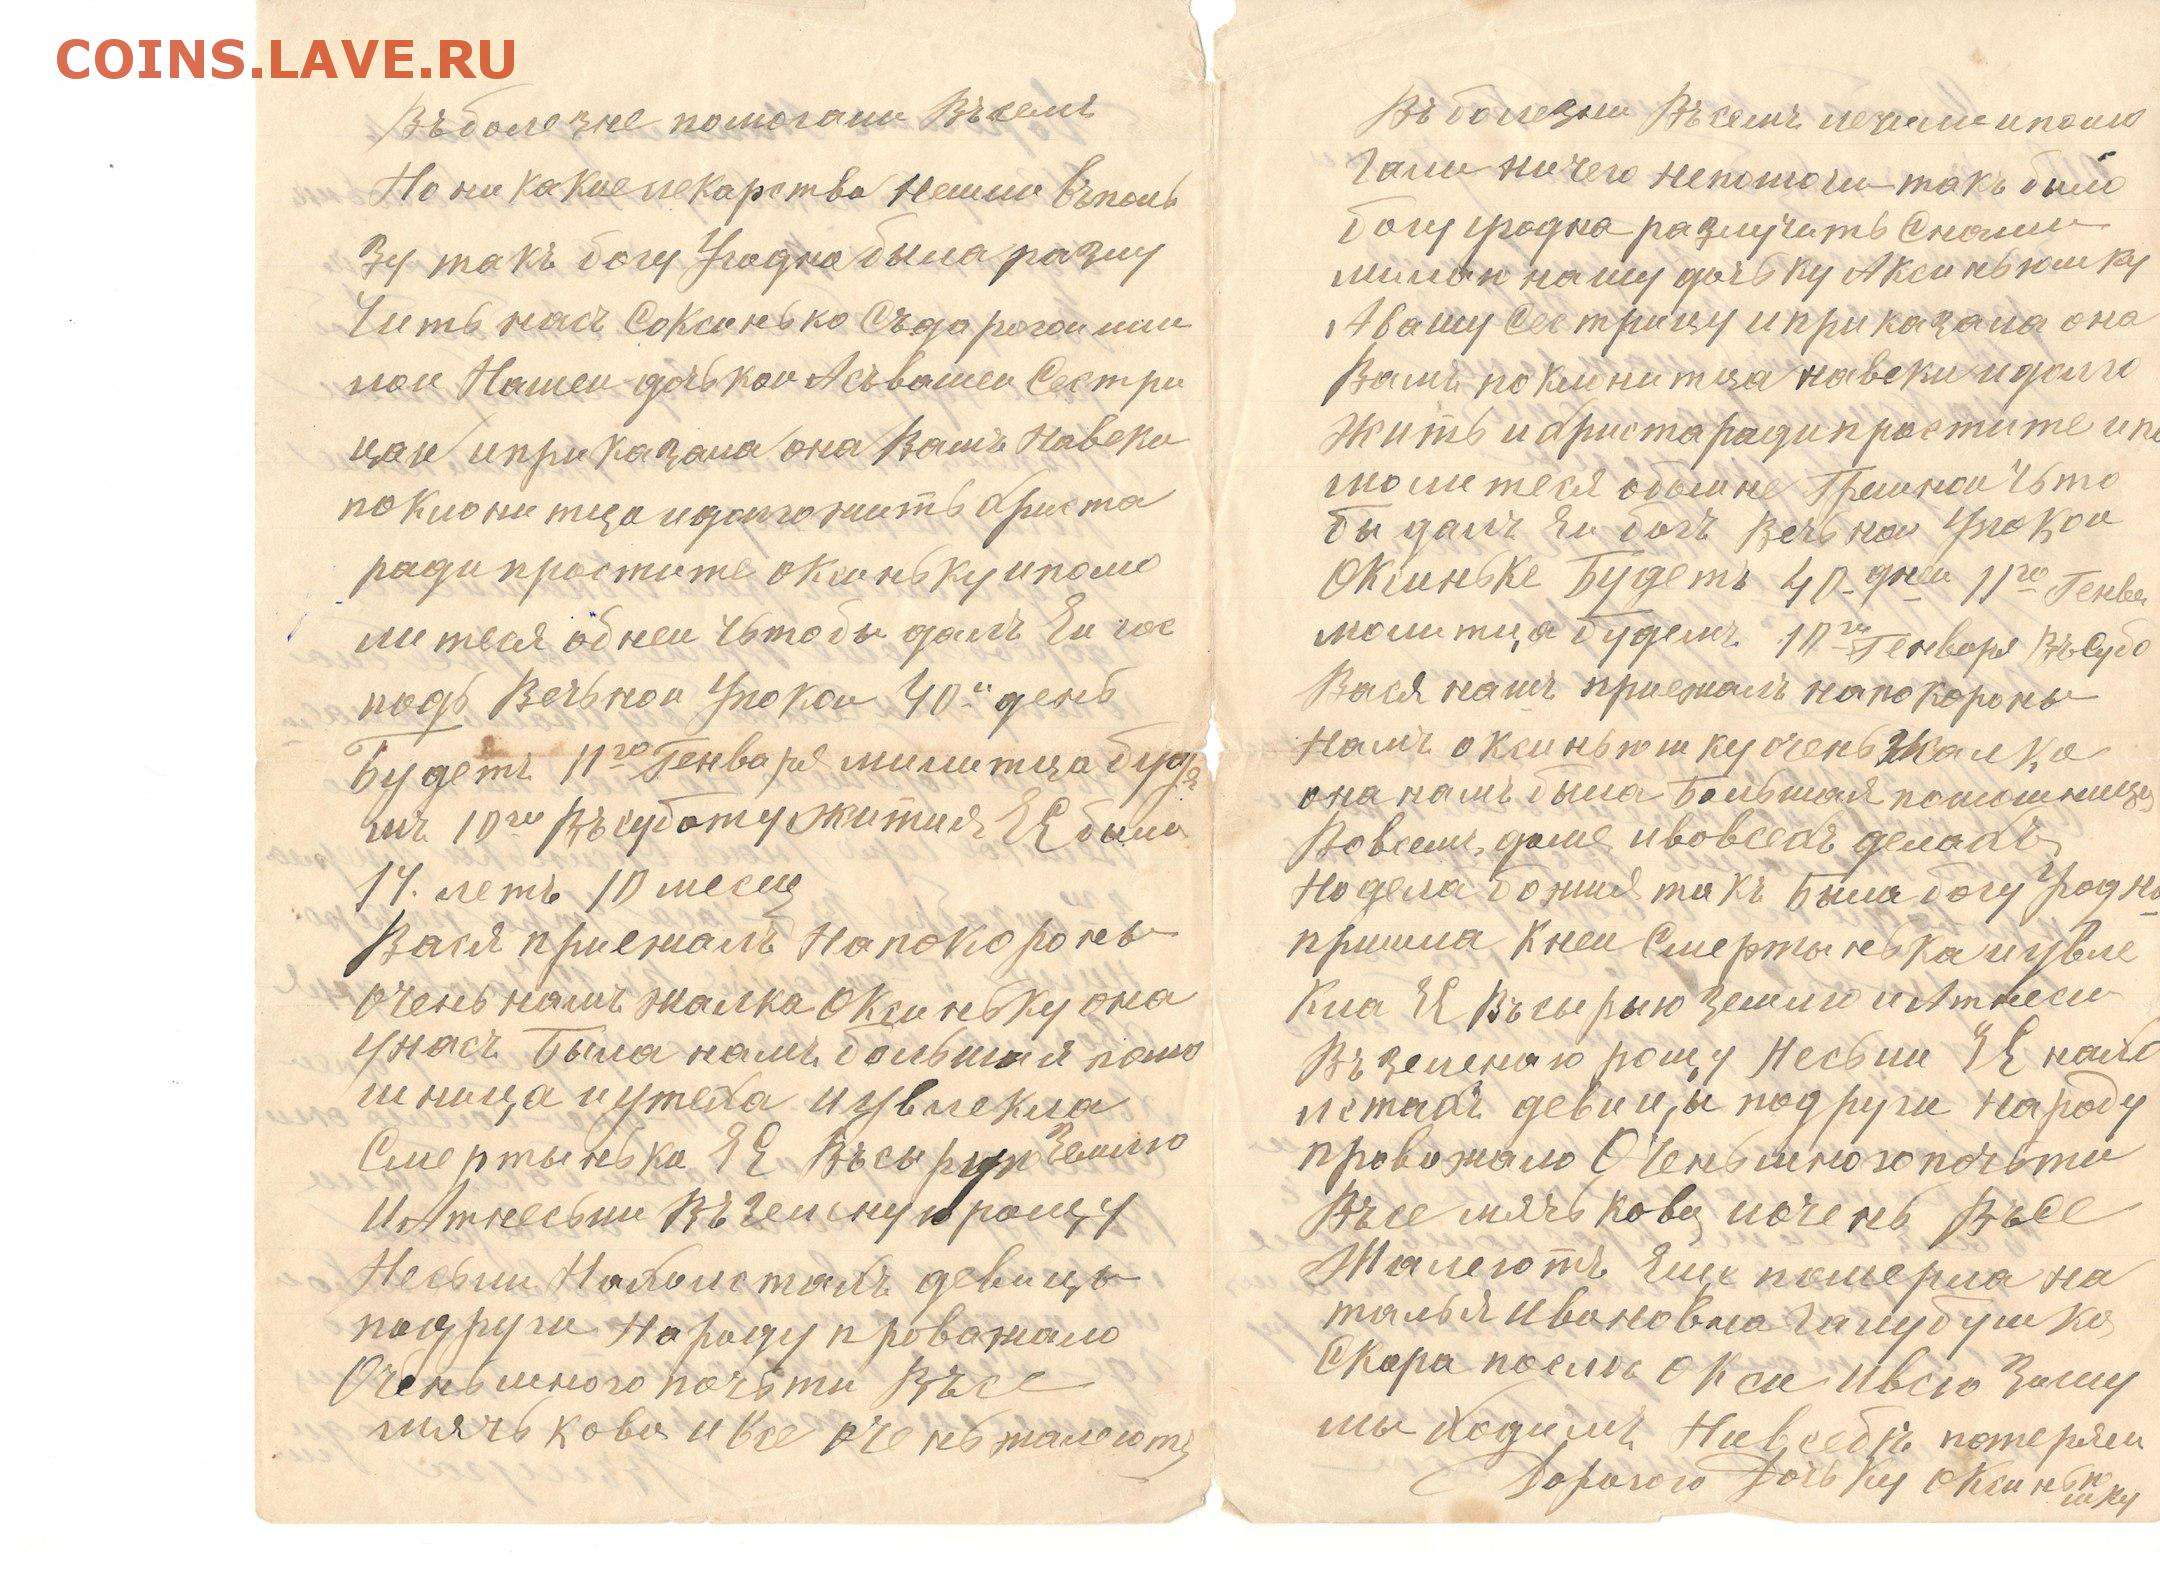 COINS.LAVE.RU
Въболезне помогали Въсемъ
Но ни какие лекарства нешли Въполь
зу такъ богу Угодна была разлу
Чить насъ Соксинько Съдорогои мил
лои Нашеи дочькои Асъвашеи Сестри
цаи иприказала она Вамъ Навеки
поклонитца идолгожить христа
ради простите оксиньку ипомо
литеся обнеи чьтобы далъ Еи гос
подь Вечьнои Упокои 40и день
Будетъ 11го Генваря милитца буде
мъ 10го Въсуботу жития ЕЕ было
14. летъ 10 месец
Вася приежалъ Напокороны
очень намъ жалка Оксиньку она
унасъ Была намъ большая помо
шница иутеха иувлекла
Смертынька ЕЕ Въсырую Землю
иАтнесьли Въ Зеленую рощу
Несьли Нахолстахъ девицы
подруги Народу провожало
Очень много почьти Въсе
мячькова ивсе очень жалеютъ
Въ болезни Въсемъ лечили ипомо
гали ничего непомочи такъ было
богу угодна разлучить Снами
милаи нашу дочьку Аксиньюшку
Авашу Сестрицу иприказала она
Вамъ поклонитца навеки идолго
Жить ихристаради простите ипо
молитеся обомне Грешнои Чьто
бы далъ Еи богъ Вечьнои Упокои
Оксиньке Будетъ 40 днеи 11го Генва
молитца будемъ 10го Генваря Въсубо
Вася нашъ приежалъ напокороны
Намъ оксиньюшку очень Жалко
она намъ была Большая помошница
Вовсемъ доме ивовсехъ делахъ
Нодела божия такъ Была богу Угодно
пришла кнеи Смертынька иувле
кла ЕЕ Въсырую землю иАтнесли
Въ зеленаю рощу Несьли ЕЕ нахо
лстахъ девицы подруги народу
провожало Очень много почьти
Въсе мячькова иочень Въсе
Жалеютъ Еще померла на
талья ивановна галубушка
Скора после Окси ивсю Зиму
мы ходимъ Нивсебе потеряли
Дорогою Дочьку Оксиньюшку